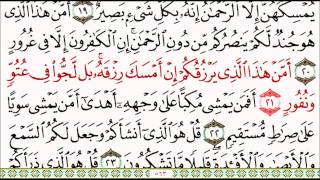 يُمْسِكُهُنَّ إِلَّا الرَّحْمَٰنُ إِنَّهُ بِكُلِّ شَيْءٍ بَصِيرٌ ١٩ أَمَّنْ هَٰذَا الَّذِي
هُوَ جُندٌ لَّكُمْ يَنصُرُكُم مِّن دُونِ الرَّحْمَٰنِ إِنِ الْكَافِرُونَ إِلَّا فِي غُرُورٍ
٢٠ أَمَّنْ هَٰذَا الَّذِي يَرْزُقُكُمْ إِنْ أَمْسَكَ رِزْقَهُ بَل لَّجُّوا فِي عُتُوٍّ
وَنُفُورٍ ٢١ أَفَمَن يَمْشِي مُكِبًّا عَلَىٰ وَجْهِهِ أَهْدَىٰ أَمَّن يَمْشِي سَوِيًّا
عَلَىٰ صِرَاطٍ مُّسْتَقِيمٍ ٢٢ قُلْ هُوَ الَّذِي أَنشَأَكُمْ وَجَعَلَ لَكُمُ السَّمْعَ
وَالْأَبْصَارَ وَالْأَفْئِدَةَ قَلِيلًا مَّا تَشْكُرُونَ ٢٣ قُلْ هُوَ الَّذِي ذَرَأَكُمْ
٥٦٣